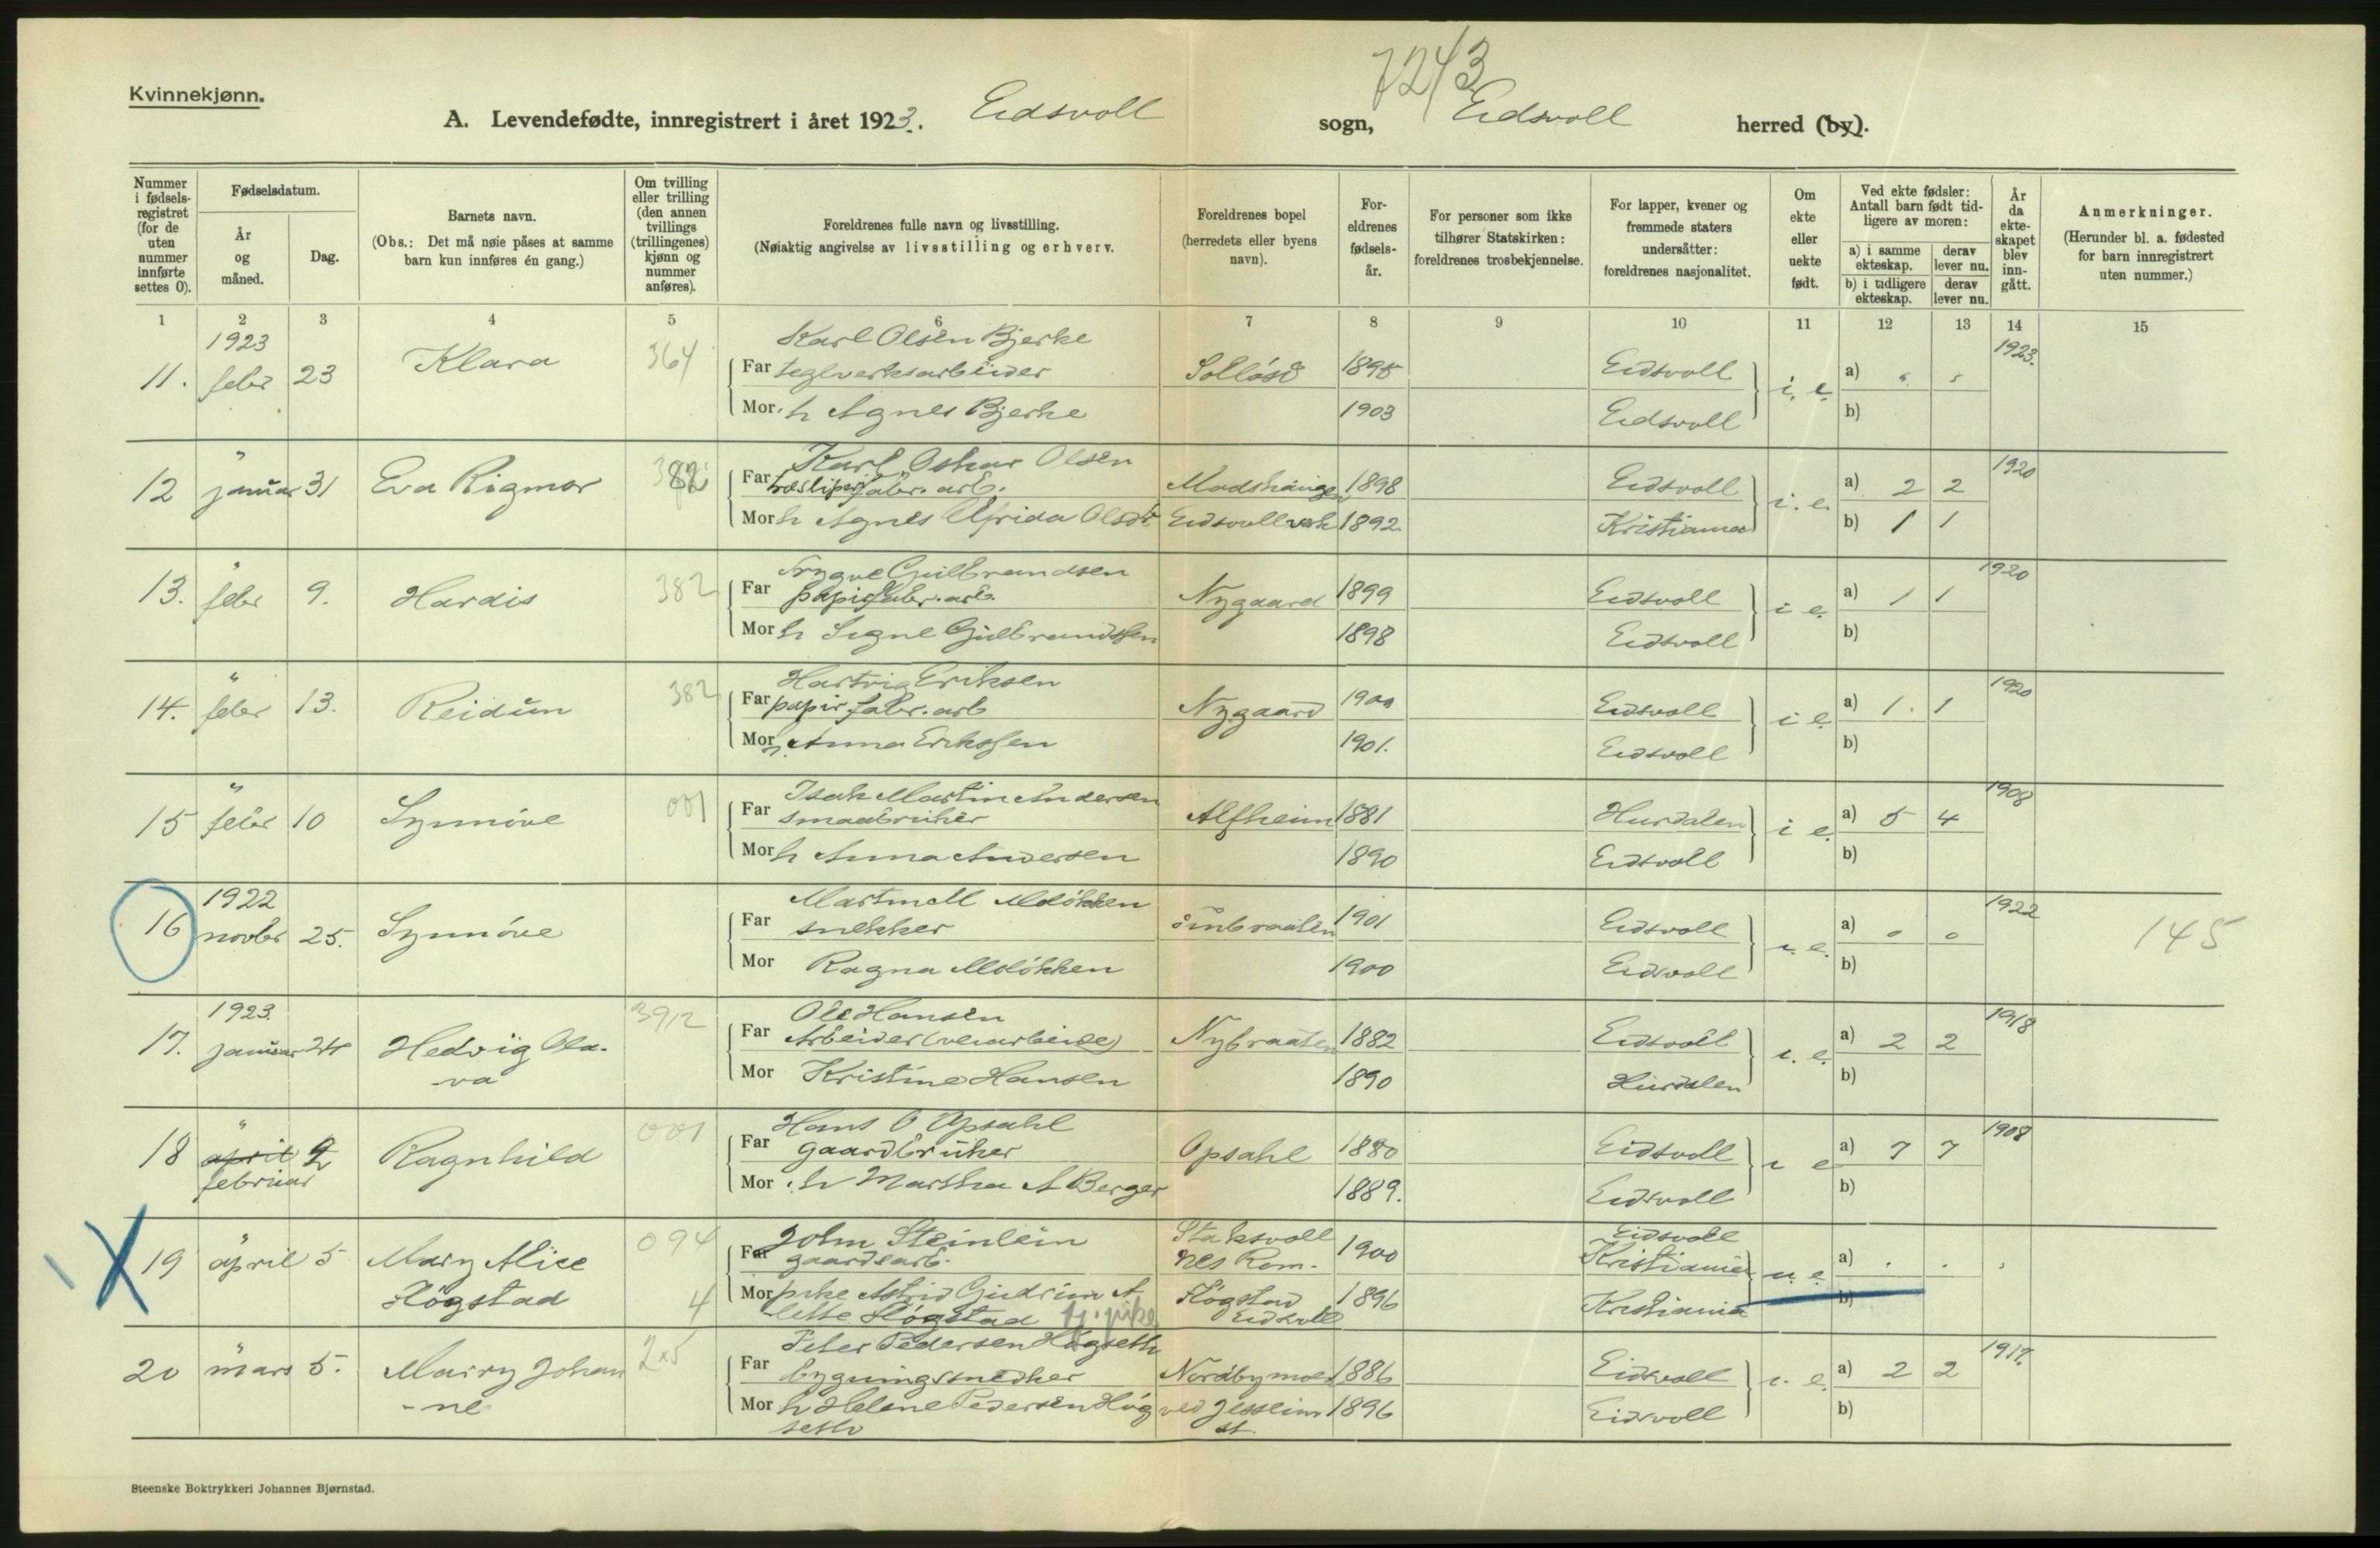 7243
Kvinnekjønn.
A. Levendefødte, innregistrert i året 1923. Eidsvoll sogn, Eidsvoll herred (by).
Nummer i fødsels-registret (for de uten nummer innførte settes 0).
Fødselsdatum.
År og måned.
Dag.
Barnets navn.
(Obs.: Det må nøie påses at samme barn kun innføres én gang.)
Om tvilling eller trilling (den annen tvillings (trillingenes) kjønn og nummer anføres).
Foreldrenes fulle navn og livsstilling.
(Nøiaktig angivelse av livsstilling og erhverv.
Foreldrenes bopel (herredets eller byens navn).
For-eldrenes fødsels-år.
For personer som ikke tilhører Statskirken: foreldrenes trosbekjennelse.
For lapper, kvener og fremmede staters undersåtter: foreldrenes nasjonalitet.
Om ekte eller uekte født.
Ved ekte fødsler: Antall barn født tid-ligere av moren:
a) i samme ekteskap. derav lever nu.
b) i tidligere ekteskap. derav lever nu.
År da ekte-skapet blev inn-gått.
Anmerkninger.
(Herunder bl. a. fødested for barn innregistrert uten nummer.)
1 2 3 4 5 6 7 8 9 10 11 12 13 14 15
1923 Karl Olsen Bjerke 1923.
11. febr 23 Klara 364 Far teglverksarbeider 1895 Eidsvoll i. e. a)
Mor h Agnes Bjerke 1903 Eidsvoll b)
" Karl Oskar Olsen 1920
12 januar 31 Eva Rigmor 382 Far træsliperifabr. arb. 1898 Eidsvoll i. e. a) 2 2
Mor h Agnes Elfrida Olsdtr Eidsvollverk 1892. Kristiania b) 1 1
" Trygve Gulbrandsen 1920
13. febr 9. Hardis 382 Far papirfabr. arb. Nygaard 1899 Eidsvoll i e. a) 1 1
Mor h Signe Gulbrandssen 1898 Eidsvoll b)
" Hartvig Eriksen 1920
14. febr 13. Reidun 382 Far papirfabr. arb Nygaard 1900 Eidsvoll i e. a) 1. 1
Mor h. Anna Erikssen 1901. Eidsvoll b)
" Isak Martin Andersen 1908
15 febr 10 Synnöve 001 Far smaabruker Alfheim 1881 Hurdalen i e. a) 5 4
Mor h Anna Andersen 1890 Eidsvoll b)
1922 Martin M 1922
16 novbr 25. Synnöve Far snekker 1901 Eidsvoll a) o o 145
Mor Ragna 1900 Eidsvoll b)
1923. Ole Hansen 1918
17. januar 24 Hedvig Ola- 3912 Far Arbeider (veiarbeide) Nybraaten 1882 Eidsvoll i. e. a) 2 2
-va Mor Kristine Hansen 1890 Hurdalen b)
" Hans O Opsahl 1908
18 april 2 Ragnhild 001 Far gaardbruker Opsahl 1880 Eidsvoll i e a) 7 7
februar Mor h Martha A Berger 1889. Eidsvoll b)
" John Steinlein Eidsvoll
19 april 5 Mary Alice 094 Far gaardsarb. nes Rom. 1900 Kristiania u. e. a)
Högstad 4 Mor pike Astrid Gudrun A Högstad 1896 Kristiania b)
lette Högstad tj. pike Eidsvoll
" Peter Pedersen Högseth 1917.
20 mars 5. Marry Johan 2x5 Far bygningssnedker Nordbymoen 1886 Eidsvoll i. e. a) 2 2
-ne Mor h Helene Pedersen Hög ved Jessheim 1896 Eidsvoll b)
seth st.
Steenske Boktrykkeri Johannes Bjørnstad.